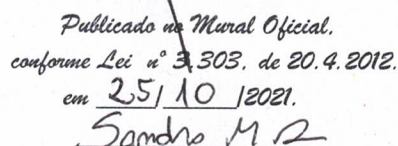 Publicado no Mural Oficial,
conforme Lei nº 3.303, de 20.4.2012.
em 25/10/2021.
Sandro M